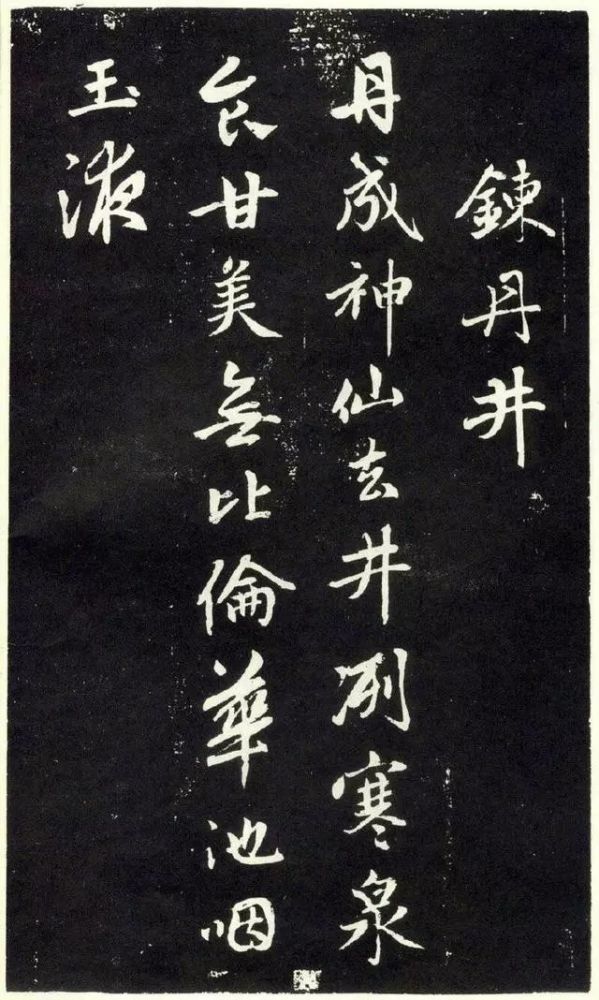 鍊丹井
丹成神仙去井列寒泉
食甘美無比倫華池咽
玉液